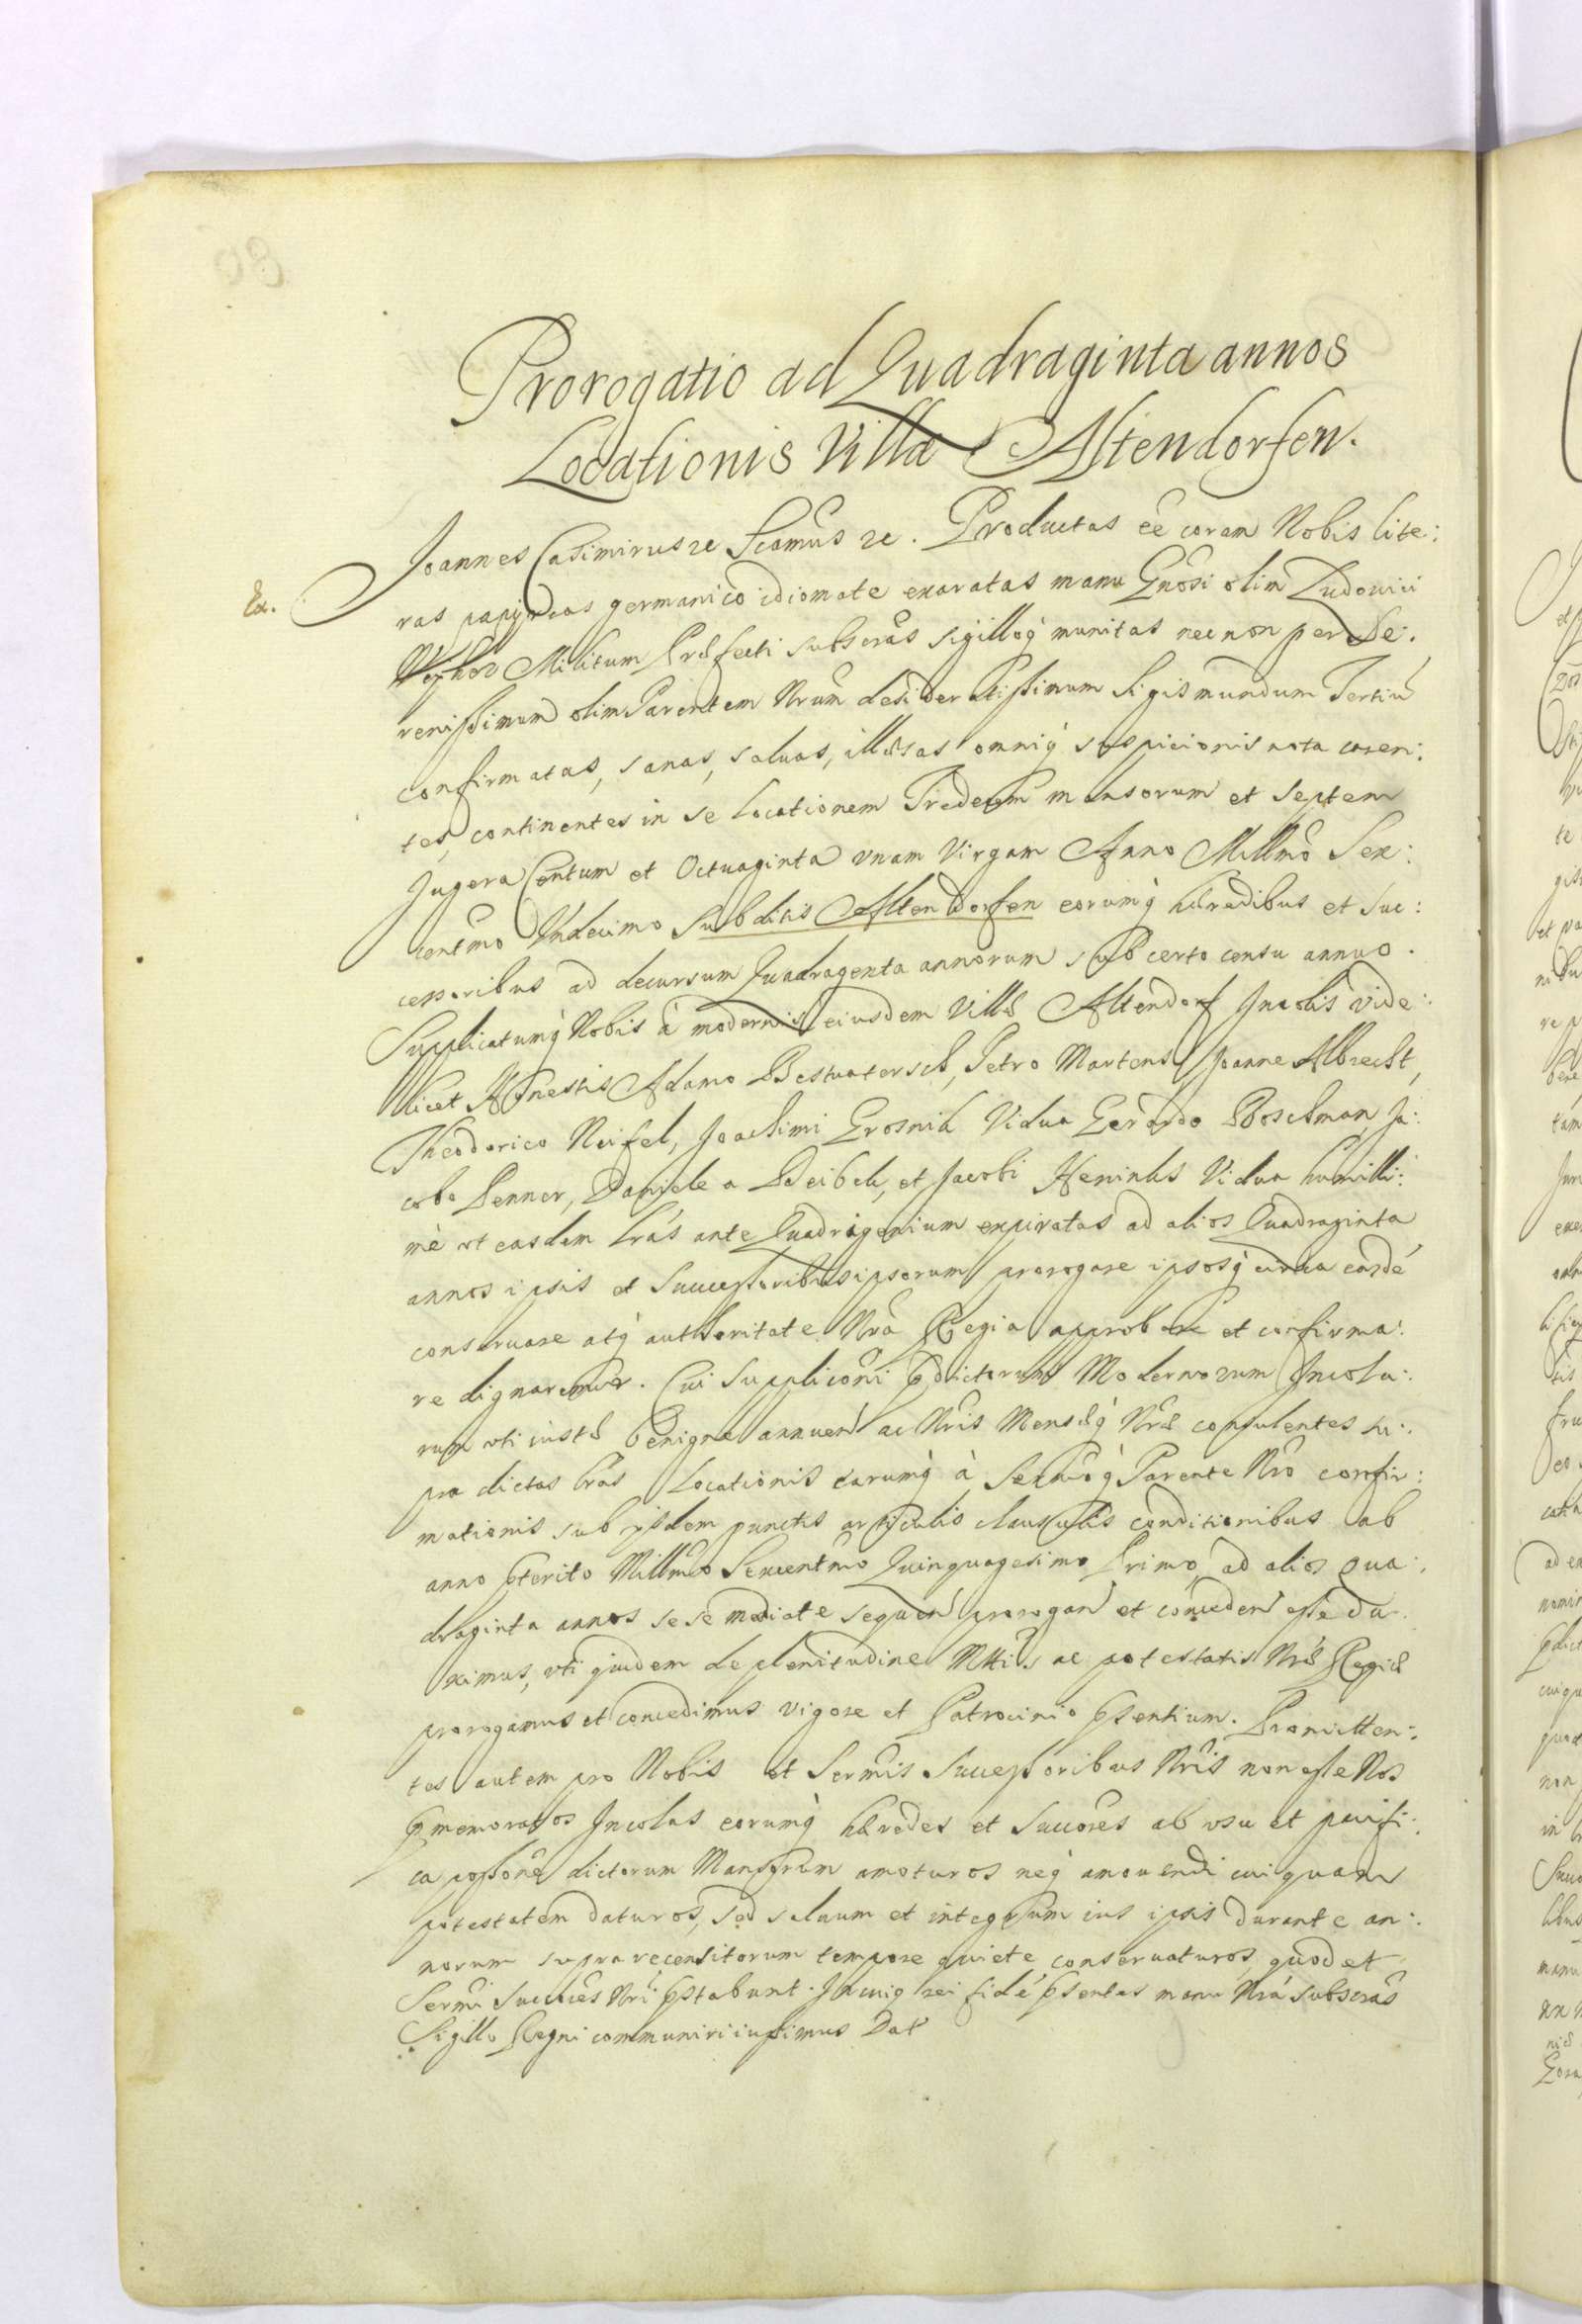 Prorogatio ad Quadraginta annos
Locationis Villæ Altendorfen.
Ex.
Joannes Casimirus etc Sicamus etc. Productas ee͂ coram Nobis lite:
ras papyreas germanico idiomate exaratas manu Gnosi olim Ludovici
Militum Præfecti subscras sigilloq́ munitas necnon per Se:
renissimum olim Parentem Nrum desideratissimum Sigismundum Tertiu͂
confirmatas, sanas, saluas, illæsas omniq́ suspicionis nota caren:
tes, continentes in se Locationem Tredecim mansorum et Septem
Jugera Centum et Octuaginta vnam Virgam Anno Millmo Sex:
centmo Vndecimo Subditis Altendorfen eorumq́ hæredibus et suc:
cessoribus ad decursum Quadragenta annorum sub certo censu annuo.
Supplicatumq́ Nobis à modernis eiusdem Villæ Altendorf Incolis vide:
licet Honestis Adamo Bestvatersch, Petro Martens, Joanne Albrecht,
Theodorico Neifel, Joachimi Grosnik Vidua Gerardo Boschman, Ja:
cobo Penner, Daniele a Beibek, et Jacobi Heninks Vidua humilli:
mè vt easdem lras ante Quadragenium expiratas ad alios Quadraginta
annos ipsis et Successoribus ipsorum prorogare ipsosq́ circa easde͂
conseruare atq́ authoritate Nra Regia approbare et confirma:
re dignaremur. Cui Suppliconi pdictorum Modernorum Incola:
rum vti iustæ benigne annuen ac Nris Mensæq́ Nræ consulentes su:
pra dictas lras Locationis earumq́ à Sermoq́ Parente Nro confir:
mationis sub ijsdem punctis articulis clausulis conditionibus ab
anno pterito Millmo Sexcentmo Quinquagesimo Primo ad alios qua:
draginta annos sese mediate sequen prorogan et conceden esse du:
ximus, vti quidem de plenitudine Nttis ac potestatis Nræ Regiæ
prorogamus et concedimus vigore et Patrocinio psentium. Promitten:
tes autem pro Nobis et Sermis Successoribus Nris non esse Nos
pmemoratos Incolas eorumq́ hæredes et Succores ab vsu et pacifi:
ca possone dictorum Mansorum amoturos neq́ amouendi cuiquam
potestatem daturos, sed saluum et integrum ius ipsis durante an:
norum supra recensitorum tempore quiete conseruaturos, quod et
Sermi Succces Nri pstabunt. In cuiq rei fide͂ psentes manu Nra subscras
Sigillo Regni communiri iussimus Dat